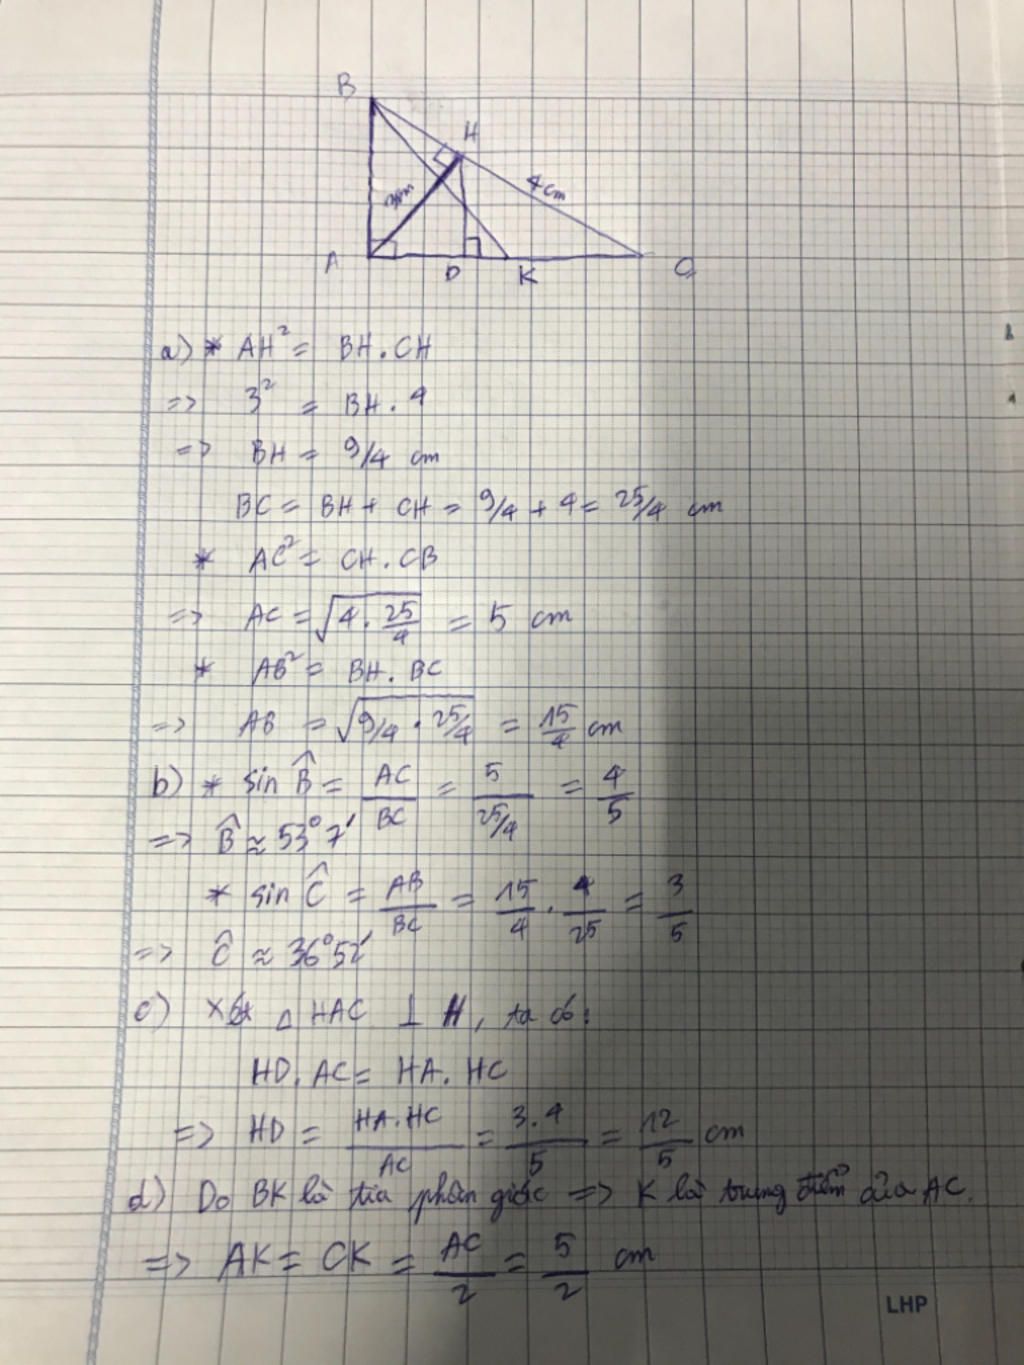 B
H
4cm
3cm
A
D
K
C
a) * AH² = BH . CH
=> 3² = BH . 4
=> BH = 9/4 cm
BC = BH + CH = 9/4 + 4 = 25/4 cm
* AC² = CH . CB
=> AC = √(4 . 25/4) = 5 cm
* AB² = BH . BC
=> AB = √(9/4 . 25/4) = 15/4 cm
b) * sin B̂ = AC/BC = 5/(25/4) = 4/5
=> B̂ ≈ 53°7'
* sin Ĉ = AB/BC = 15/4 . 4/25 = 3/5
=> Ĉ ≈ 36°52'
c) Xét △ HAC ⊥ H, ta có:
HD . AC = HA . HC
=> HD = HA.HC/AC = 3.4/5 = 12/5 cm
d) Do BK là tia phân giác => K là trung điểm của AC.
=> AK = CK = AC/2 = 5/2 cm
LHP